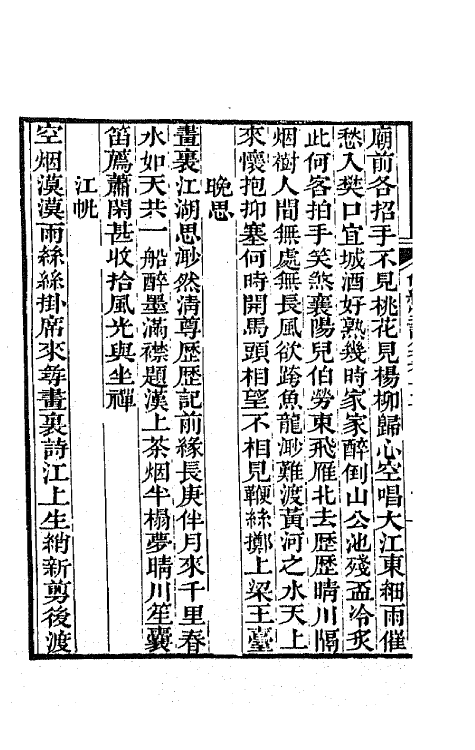 廟前各招手不見桃花見楊柳歸心空唱大江東細雨催
愁入樊口宜城酒好熟幾時家家醉倒山公池殘盃冷炙
此何客拍手笑煞襄陽兒伯勞東飛雁北去歷歷晴川隔
烟樹人間無處無長風欲跨魚龍渺難渡黃河之水天上
來懷抱抑塞何時開馬頭相望不相見鞭絲擲上梁王臺
晚思
畫裏江湖思渺然清尊歷歷記前緣長庚伴月來千里春
水如天共一船醉墨滿襟題漢上茶烟半榻夢晴川笙囊
笛薦蕭閑甚收拾風光與坐禪
江帆
空烟漠漠雨絲絲掛席來尋畫裏詩江上生綃新剪後渡